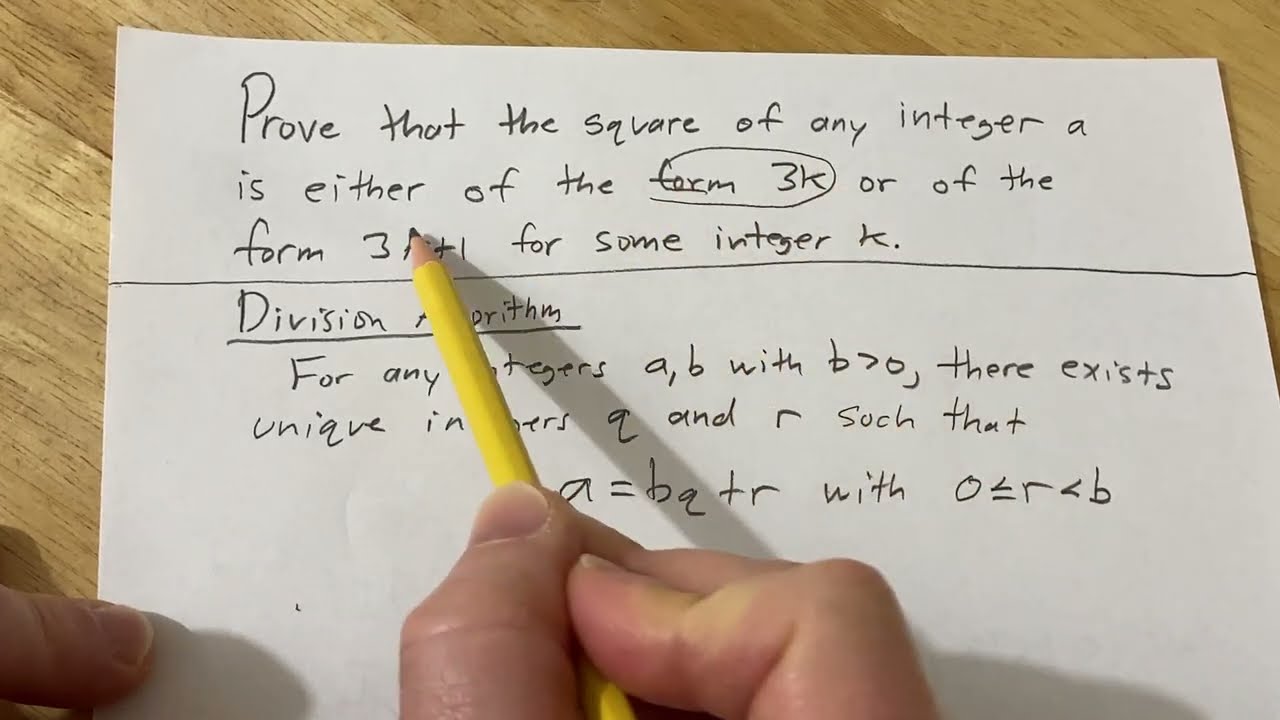 Prove that the square of any integer a
is either of the form 3k or of the
form 3k+1 for some integer k.
Division Algorithm
For any integers a,b with b>0, there exists
unique integers q and r such that
a = bq + r with 0≤r<b